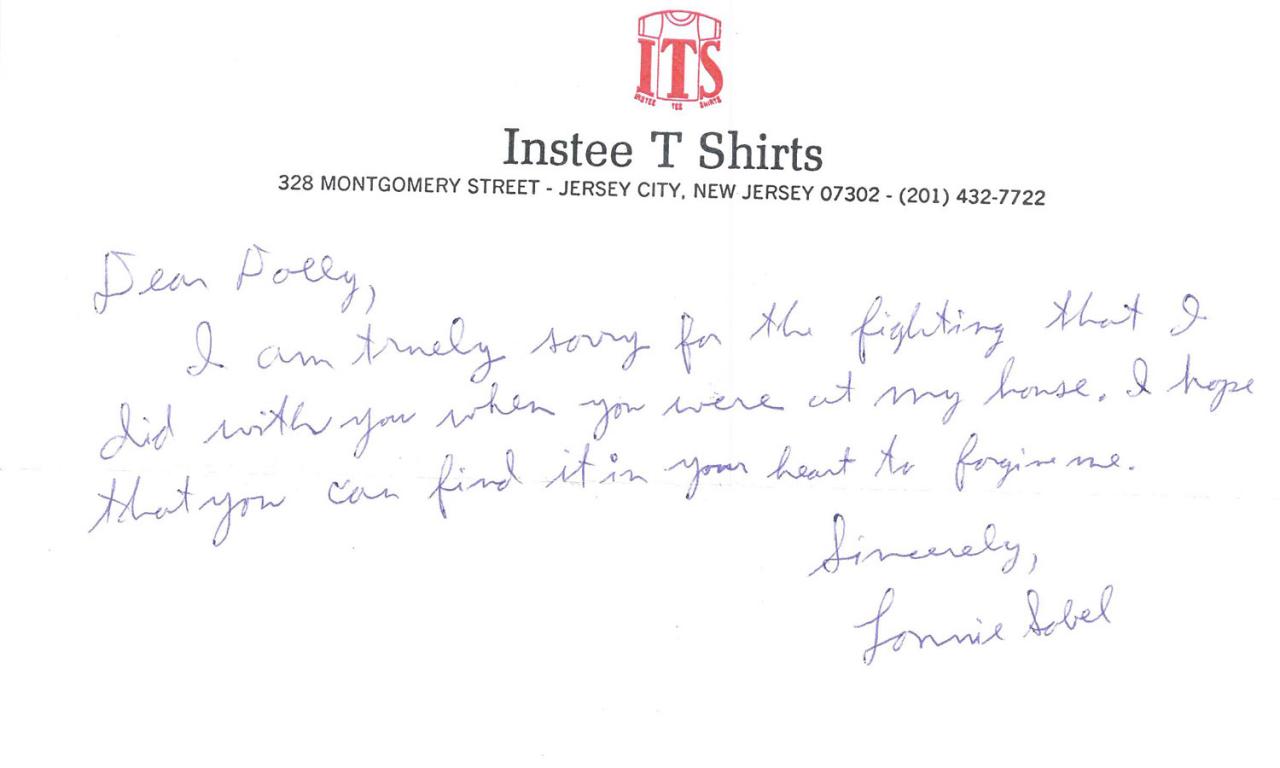 ITS
INSTEE TEE SHIRTS
Instee T Shirts
328 MONTGOMERY STREET - JERSEY CITY, NEW JERSEY 07302 - (201) 432-7722
Dear Dolly,
I am truely sorry for the fighting that I
did with you when you were at my house. I hope
that you can find it in your heart to forgive me.
Sincerely,
Lonnie Sobel